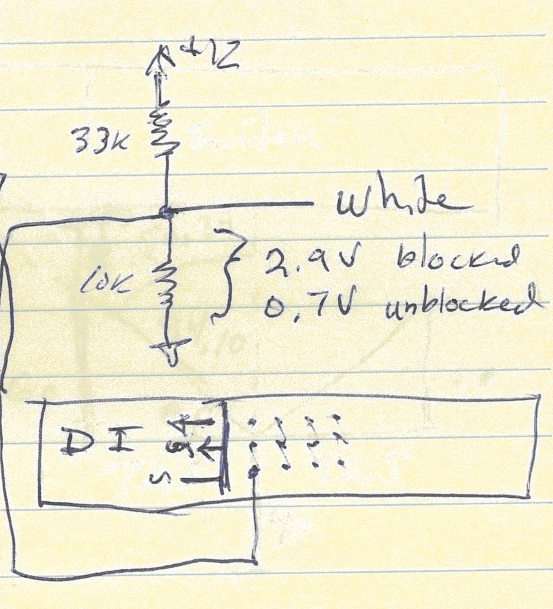 +12
33K
White
10K
2.9V blocked
0.7V unblocked
DI
S